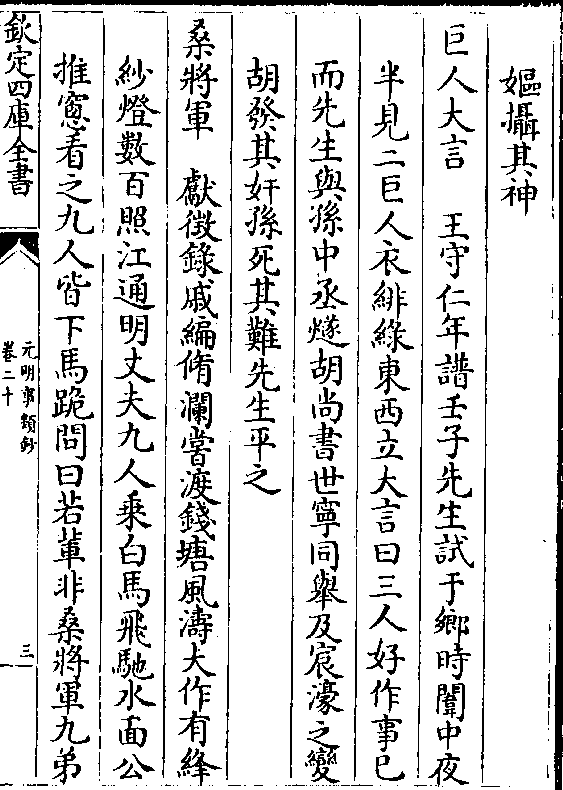 嫗攝其神
巨人大言　王守仁年譜壬子先生試于鄉時闈中夜
半見二巨人衣緋綠東西立大言曰三人好作事已
而先生與孫中丞燧胡尚書世寧同舉及宸濠之變
胡發其奸孫死其難先生平之
桑將軍　獻徵錄戚編脩瀾嘗渡錢塘風濤大作有絳
紗燈數百照江通明丈夫九人乘白馬飛馳水面公
推窻看之九人皆下馬跪問曰若輩非桑將軍九弟
欽定四庫全書
元明事類鈔
卷二十
三